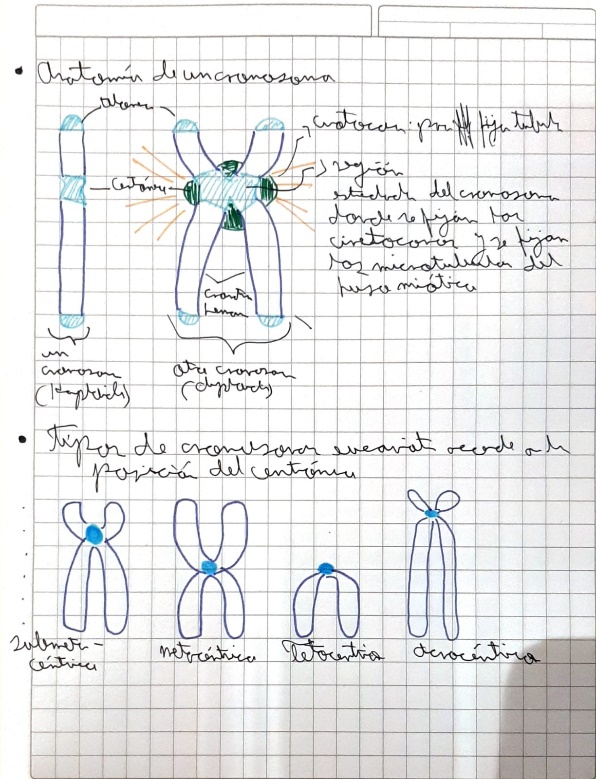 Anatomía de un cromosoma
telómeros
Cinetocoro: fija tubul
región
del cromosoma
donde se fijan los
cinetocoros y se fijan
los microtubulos del
huso mitótico
Centrómero
Cromátidas
hermanas
un
cromosoma
(Haploide)
otro cromosoma
(diploide)
Tipos de cromosomas eucariota acorde a la
posición del centrómero
Submeta-
céntrico
metacéntrico
Telocéntrico
Acrocéntrico